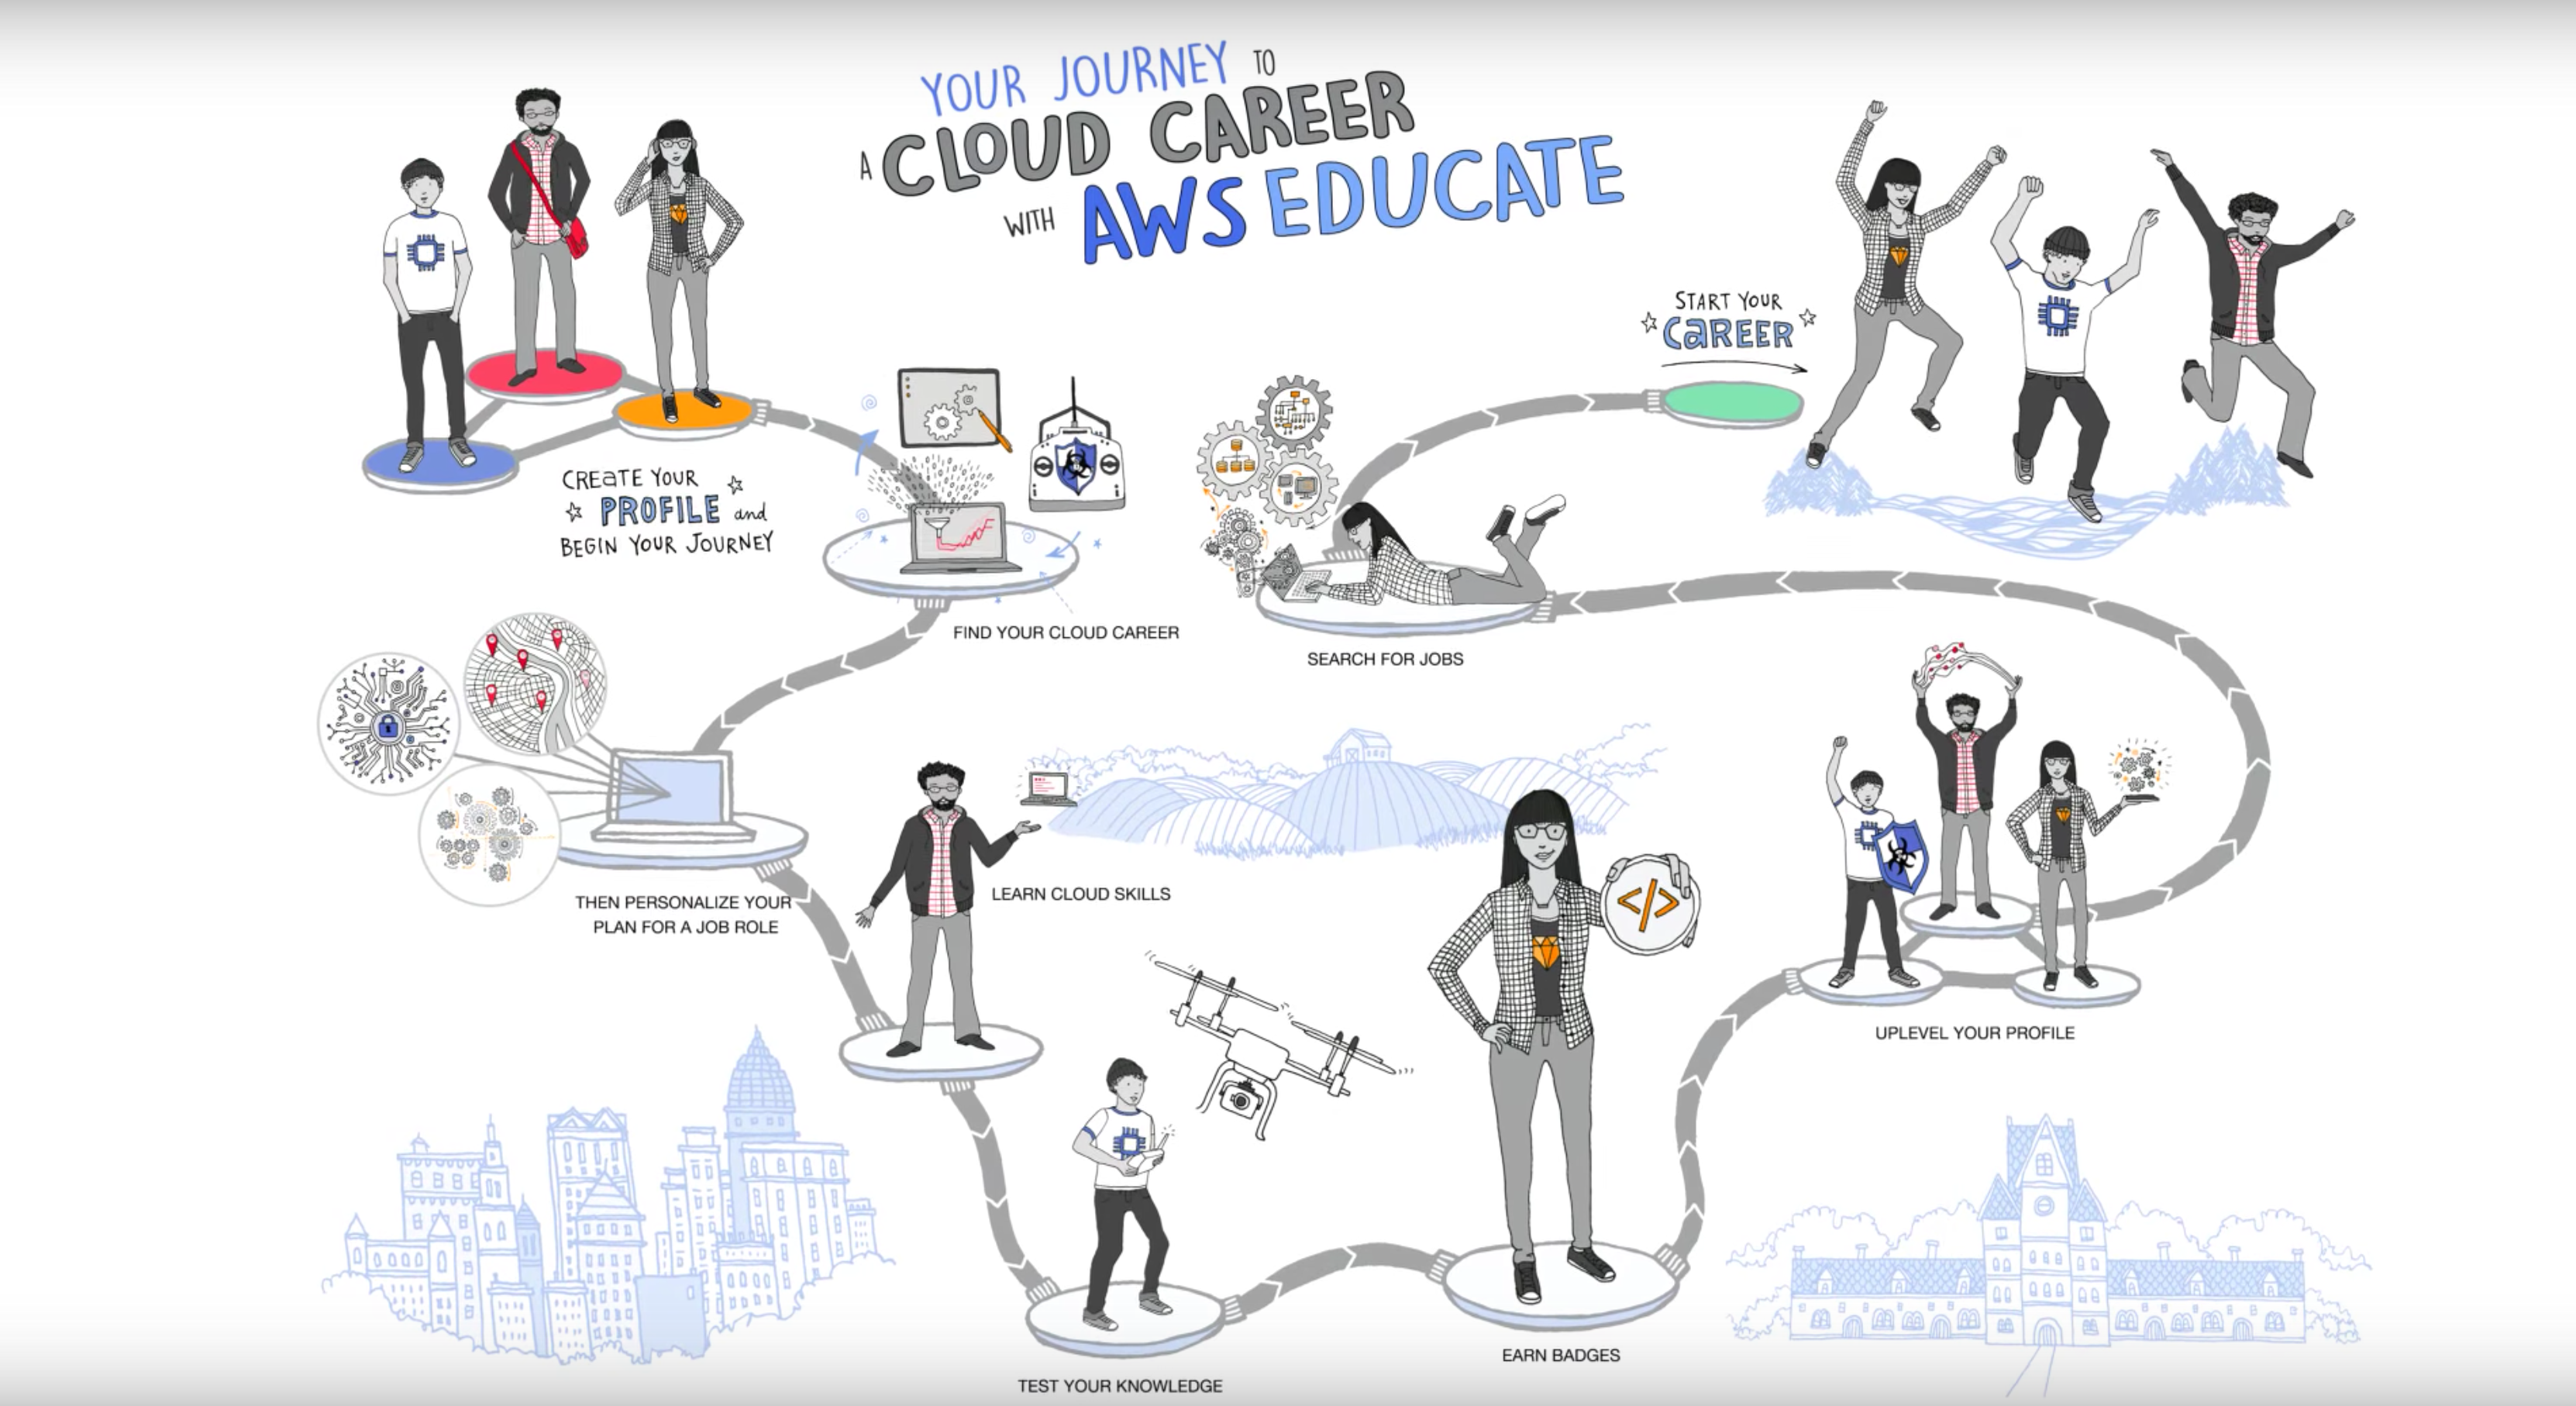 YOUR JOURNEY TO
A CLOUD CAREER
WITH AWS EDUCATE
CREATE YOUR
PROFILE and
BEGIN YOUR JOURNEY
FIND YOUR CLOUD CAREER
THEN PERSONALIZE YOUR
PLAN FOR A JOB ROLE
LEARN CLOUD SKILLS
TEST YOUR KNOWLEDGE
</>
EARN BADGES
UPLEVEL YOUR PROFILE
SEARCH FOR JOBS
START YOUR
CAREER